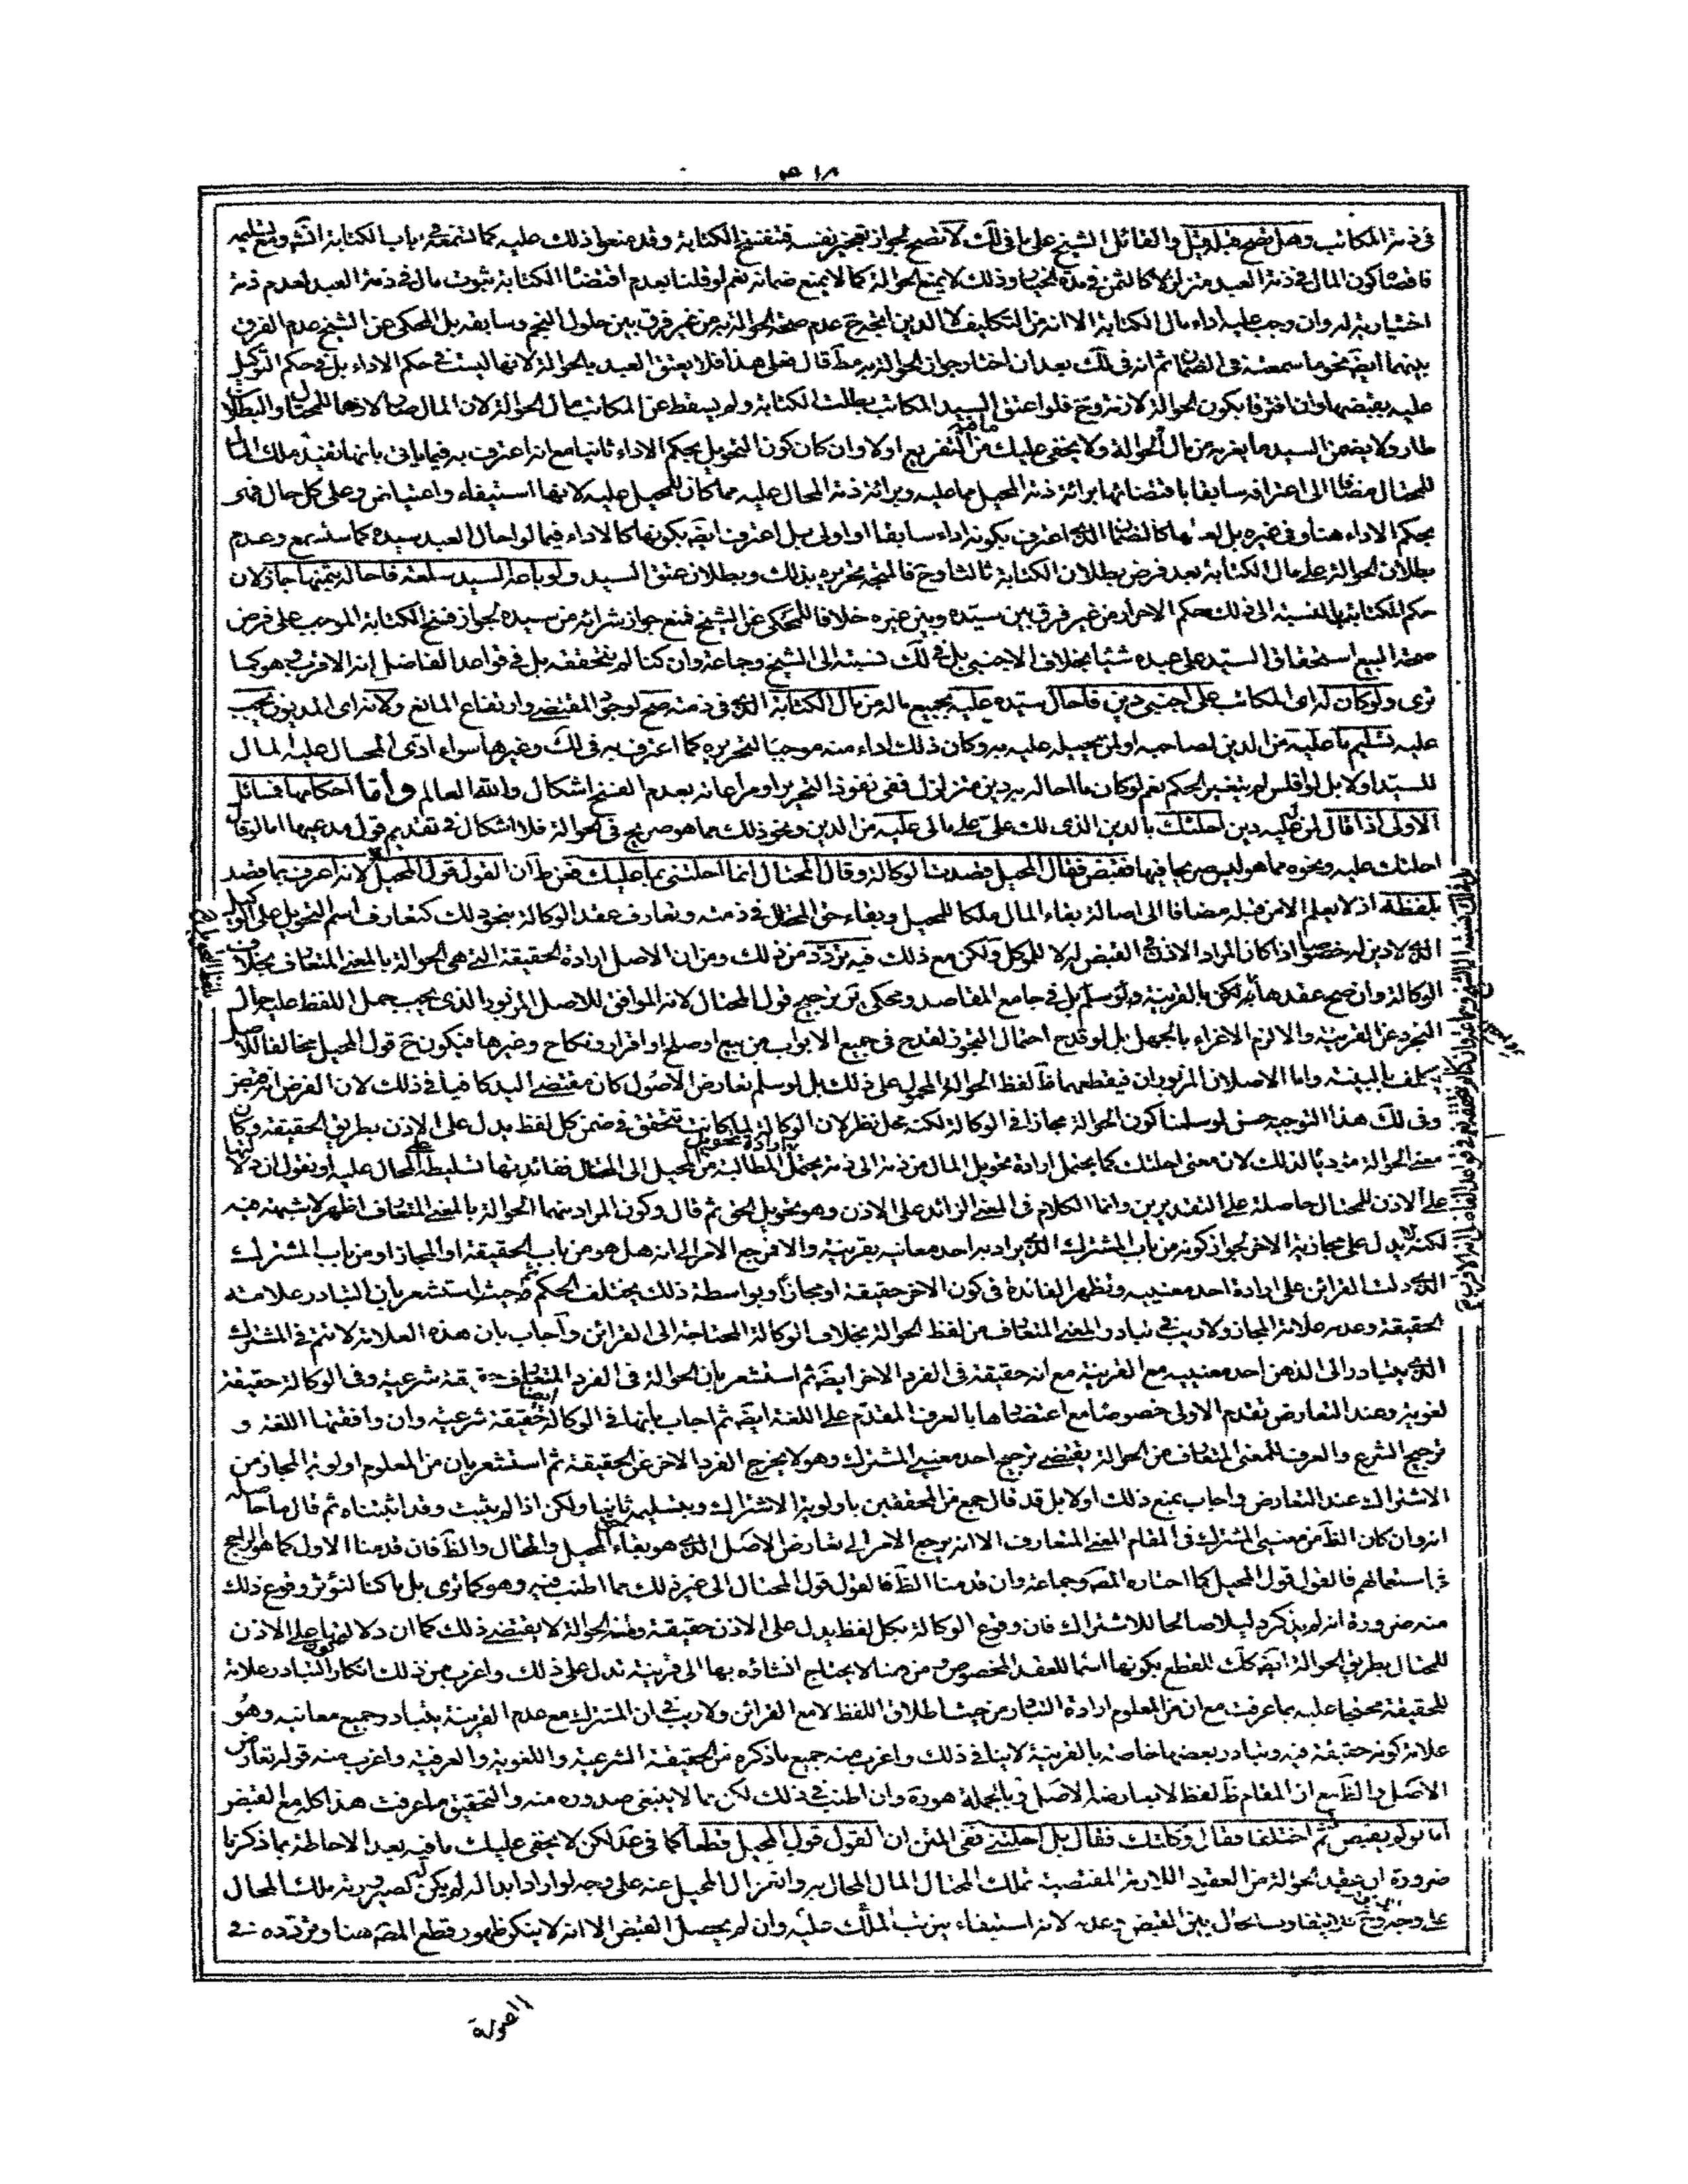 في ذمة المكاتب وهل تصح قبله قيل والقائل الشيخ على ما في لك لا تصح لجواز تعجيز نفسه فتنفسخ الكتابة وقد منعوا ذلك عليه كما تسمعه في باب الكتابة انش ومع تسليمه
فاقصاه كون المال في ذمة العبد متزلزلا كالثمن في مدة الخيار وذلك لا يمنع الحوالة كما لا يمنع ضمانه نعم لو قلنا بعدم اقتضاء الكتابة ثبوت مال في ذمة العبد لعدم ذمة
اختيارية له وان وجب عليه اداء مال الكتابة الا انه من التكليف لا الدين اتجه ح عدم صحة الحوالة به من غير فرق بين حلول النجم وسابقه بل المحكي عن الشيخ عدم الفرق
بينهما ايضا نحو ما سمعته في الضمان ثم انه في لك بعد ان اختار جواز الحوالة به مط قال فعلى هذا فلا يعتق العبد بالحوالة لانها ليست في حكم الاداء بل في حكم التوكيل
عليه بقبضها وان افترقا بكون الحوالة لازمة وح فلو اعتق السيد المكاتب بطلت الكتابة ولم يسقط عن المكاتب مال الحوالة لان المال صار لازما للمحتال والبطلان
طار ولا يضمن السيد ما يغرمه من مال الحوالة ولا يخفى عليك ما فيه من التفريع اولا وان كان كون التحويل بحكم الاداء ثانيا مع انه اعترف به فيما ياتي بانها تفيد ملك المال
للمحتال مضافا الى اعترافه سابقا باقتضائها برائة ذمة المحيل مما عليه وبرائة ذمة المحال عليه مما كان للمحيل عليه لانها استيفاء واعتياض وعلى كل حال فهي
بحكم الاداء هنا وفي غيره بل لعلها كالضمان الذي اعترف بكونه اداء سابقا او اولى بل اعترف ايضا بكونها كالاداء فيما لو احال العبد سيده كما ستسمع وعدم
بطلان الحوالة على مال الكتابة بعد فرض بطلان الكتابة ثالثا وح فالمتجه تحريره بذلك وبطلان عتق السيد ولو باعه السيد سلعة فاحاله بثمنها جاز لان
حكم المكاتب بالنسبة الى ذلك حكم الاحرار من غير فرق بين سيده وبين غيره خلافا للمحكي عن الشيخ فمنع جواز شرائه من سيده لجواز فسخ الكتابة الموجب على فرض
صحة البيع استحقاق السيد على عبده شيئا بخلاف الاجنبي بل في لك نسبته الى الشيخ وجماعة وان كنا لم نتحققه بل في قواعد الفاضل انه الاقرب وهو كما
ترى ولو كان له اى المكاتب على اجنبي دين فاحال سيده عليه بجميع ماله من مال الكتابة الذي في ذمته صح لوجود المقتضي وارتفاع المانع ولانه اى المديون يجب
عليه تسليم ما عليه من الدين لصاحبه او لمن يحيله عليه به وكان ذلك اداء منه موجبا لتحريره كما اعترف به في لك وغيرها سواء ادى المحال عليه المال
للسيد اولا بل لو افلس لم يتغير الحكم نعم لو كان ما احاله به دين متزلزل ففي نفوذ التحرير او مراعاته بعدم الفسخ اشكال والله العالم واما احكامها فمسائل
الاولى اذا قال لمن له عليه دين احلتك بالدين الذى لك علي على مالى عليه من الدين ونحو ذلك مما هو صريح في الحوالة فلا اشكال في تقديم قول مدعيها اما لو قال
احلتك عليه ونحوه مما هو ليس صريحا فيها فقبض فقال المحيل قصدت الوكالة وقال المحتال انما احلتني بما عليك فعن ط ان القول قول المحيل لانه اعرف بما قصد
بلفظه اذ لا يعلم الا من قبله مضافا الى اصالة بقاء المال ملكا للمحيل وبقاء حق المحتال في ذمته وتعارف عقد الوكالة بنحو ذلك كتعارف اسم التحويل على الوكيل
الذي لا دين له خصوصا اذا كان المراد الاذن في القبض له لا للموكل ولكن مع ذلك فيه تردد من ذلك ومن ان الاصل ارادة الحقيقة التي هي الحوالة بالمعنى المتعارف بخلاف
الوكالة وان صح عقدها به لكن بالقرينة ولو سلم بل في جامع المقاصد ومحكي كر ترجيح قول المحتال لانه الموافق للاصل المزبور الذى يجب حمل اللفظ عليه حال
التجرد عن القرينة والا لزم الاغراء بالجهل بل لو قدح احتمال التجوز لقدح في جميع الابواب من بيع او صلح او اقرار ونكاح وغيرها فيكون ح قول المحيل مخالفا للاصل
يكلف بالبينة واما الاصلان المزبوران فيقطعهما ظ لفظ الحوالة المحمول على ذلك بل لو سلم تعارض الاصول كان مقتضى اليد كافيا في ذلك لان الفرض انه قبض
وفي لك هذا التوجيه حسن لو سلمنا كون الحوالة مجازا في الوكالة لكنه محل نظر لان الوكالة لما كانت تتحقق في ضمن كل لفظ يدل على الاذن بطريق الحقيقة وكان
معنى الحوالة مؤديا لذلك لان معنى احلتك كما يحتمل ارادة تحويل المال من ذمة الى ذمة يحتمل ارادة تحويل المطالبة من المحيل الى المحتال ففائدتها تسليطه على المحال عليه او نقول ان دلالتها
على الاذن للمحتال حاصلة على التقديرين وانما الكلام في المعنى الزائد على الاذن وهو تحويل الحق ثم قال وكون المراد منهما الحوالة بالمعنى المتعارف اظهر لا شبهة فيه
لكنه لا يدل على مجازية الاخر لجواز كونه من باب المشترك الذي يراد به احد معانيه بقرينة والا فمرجع الامر الى انه هل هو من باب الحقيقة او المجاز او من باب المشترك
الذي دلت القرائن على ارادة احد معنييه وتظهر الفائدة في كون الاخر حقيقة او مجازا وبواسطة ذلك يختلف الحكم ثم حيث استشعر بان التبادر علامة
الحقيقة وعدمه علامة المجاز ولا ريب في تبادر المعنى المتعارف من لفظ الحوالة بخلاف الوكالة المحتاجة الى القرائن واجاب بان هذه العلامة لا تتم في المشترك
الذي يتبادر الى الذهن احد معنييه مع القرينة مع انه حقيقة في الفرد الاخر ايضا ثم استشعر بان الحوالة في الفرد المتعارف حقيقة شرعية وفي الوكالة حقيقة
لغوية وعند التعارض تقدم الاولى خصوصا مع اعتضادها بالعرف المقدم على اللغة ايضا ثم اجاب بانها في الوكالة ايضا حقيقة شرعية وان وافقتها اللغة و
ترجيح الشرع والعرف للمعنى المتعارف من الحوالة يقتضي ترجيح احد معنيي المشترك وهو لا يخرج الفرد الاخر عن الحقيقة ثم استشعر بان من المعلوم اولوية المجاز من
الاشتراك عند التعارض واجاب بمنع ذلك اولا بل قد قال جمع من المحققين باولوية الاشتراك وبتسليمه ثانيا ولكن اذا لم يثبت وقد اثبتناه ثم قال ما حاصله
انه وان كان الظ من معنيي المشترك في المقام المعنى المتعارف الا انه يرجع الامر الى تعارض الاصل الذي هو بقاء حق المحيل والمحتال والظ فان قدمنا الاول كما هو الراجح
في استعمالهم فالقول قول المحيل كما اختاره المصه وجماعة وان قدمنا الظ فالقول قول المحتال الى غير ذلك مما اطنب فيه وهو كما ترى بل ما كنا لنؤثر وقوع ذلك
منه ضرورة انه لم يذكر دليلا صالحا للاشتراك فان وقوع الوكالة بكل لفظ يدل على الاذن حقيقة ومنه الحوالة لا يقتضي ذلك كما ان دلالتها على الاذن
للمحتال بطريق الحوالة ايضا كك للقطع بكونها اسما للعقد المخصوص من هنا لا يحتاج انشاؤه بها الى قرينة تدل على ذلك واغرب من ذلك انكار كون التبادر علامة
للحقيقة محتجا عليه بما عرفت مع ان من المعلوم ارادة التبادر من حيث اطلاق اللفظ لا مع القرائن ولا ريب في ان المشترك مع عدم القرينة يتبادر جميع معانيه وهو
علامة كونه حقيقة فيه وتبادر بعضها خاصة بالقرينة لا ينافي ذلك واغرب منه جميع ما ذكره من الحقيقة الشرعية واللغوية والعرفية واغرب منه قوله تعارض
الاصل والظ مع ان المقام ظ لفظ لا يعارضه الاصل وبالجملة هو ره وان اطنب في ذلك لكن بما لا ينبغي صدوره منه والتحقيق ما عرفت هذا كله مع القبض
اما لو لم يقبض ثم اختلفا فقال وكلتك فقال بل احلتني ففي المتن ان القول قول المحيل قطعا كما في عد لكن لا يخفى عليك ما فيه بعد الاحاطة بما ذكرنا
ضرورة ان عقد الحوالة من العقود اللازمة المقتضية تملك المحتال المال المحال به وانعزال المحيل عنه على وجه لو اراد ابداله لم يكن له لصيرورته ملك المحال
على وجه وح فلا يتفاوت الحال بين القبض وعدمه لانه استيفاء يترتب الملك عليه وان لم يحصل القبض الا انه لا ينكر ظهور قطع المصه هنا وتردده في
الصورة